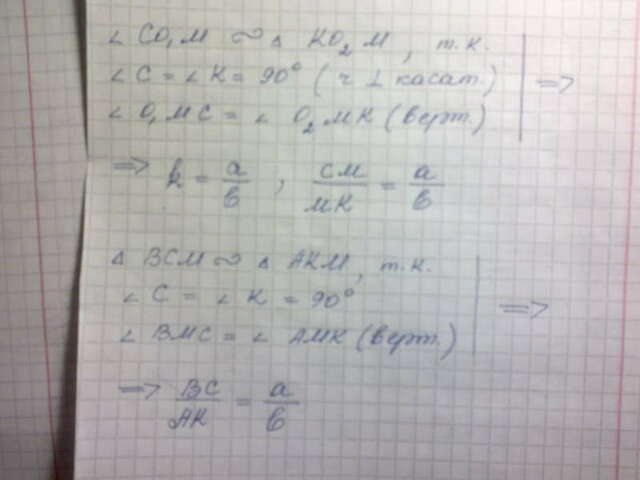 ∠ CO₁M ∾ ▵ KO₂M, т.к.
∠ C = ∠ K = 90° (r ⊥ касат.) ⟹
∠ O₁MC = ∠ O₂MK (верт.)
⟹ k = a/в, CM/MK = a/в
▵ BCM ∾ ▵ AKM, т.к.
∠ C = ∠ K = 90° ⟹
∠ BMC = ∠ AMK (верт.)
⟹ BC/AK = a/в